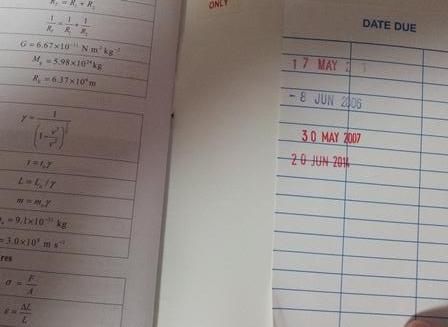 R_T = R_1 + R_2
ONLY
1/R_T = 1/R_1 + 1/R_2
G = 6.67×10⁻¹¹ N m² kg⁻²
= 5.98×10²⁴ kg
= 6.37×10⁶ m
γ = 1
t = t₀γ
L = L₀/γ
m = m₀γ
= 9.1×10⁻³¹ kg
= 3.0×10⁸ m s⁻¹
res
σ = F/A
ε = ΔL/L
DATE DUE
17 MAY
- 8 JUN 2006
30 MAY 2007
20 JUN 2014